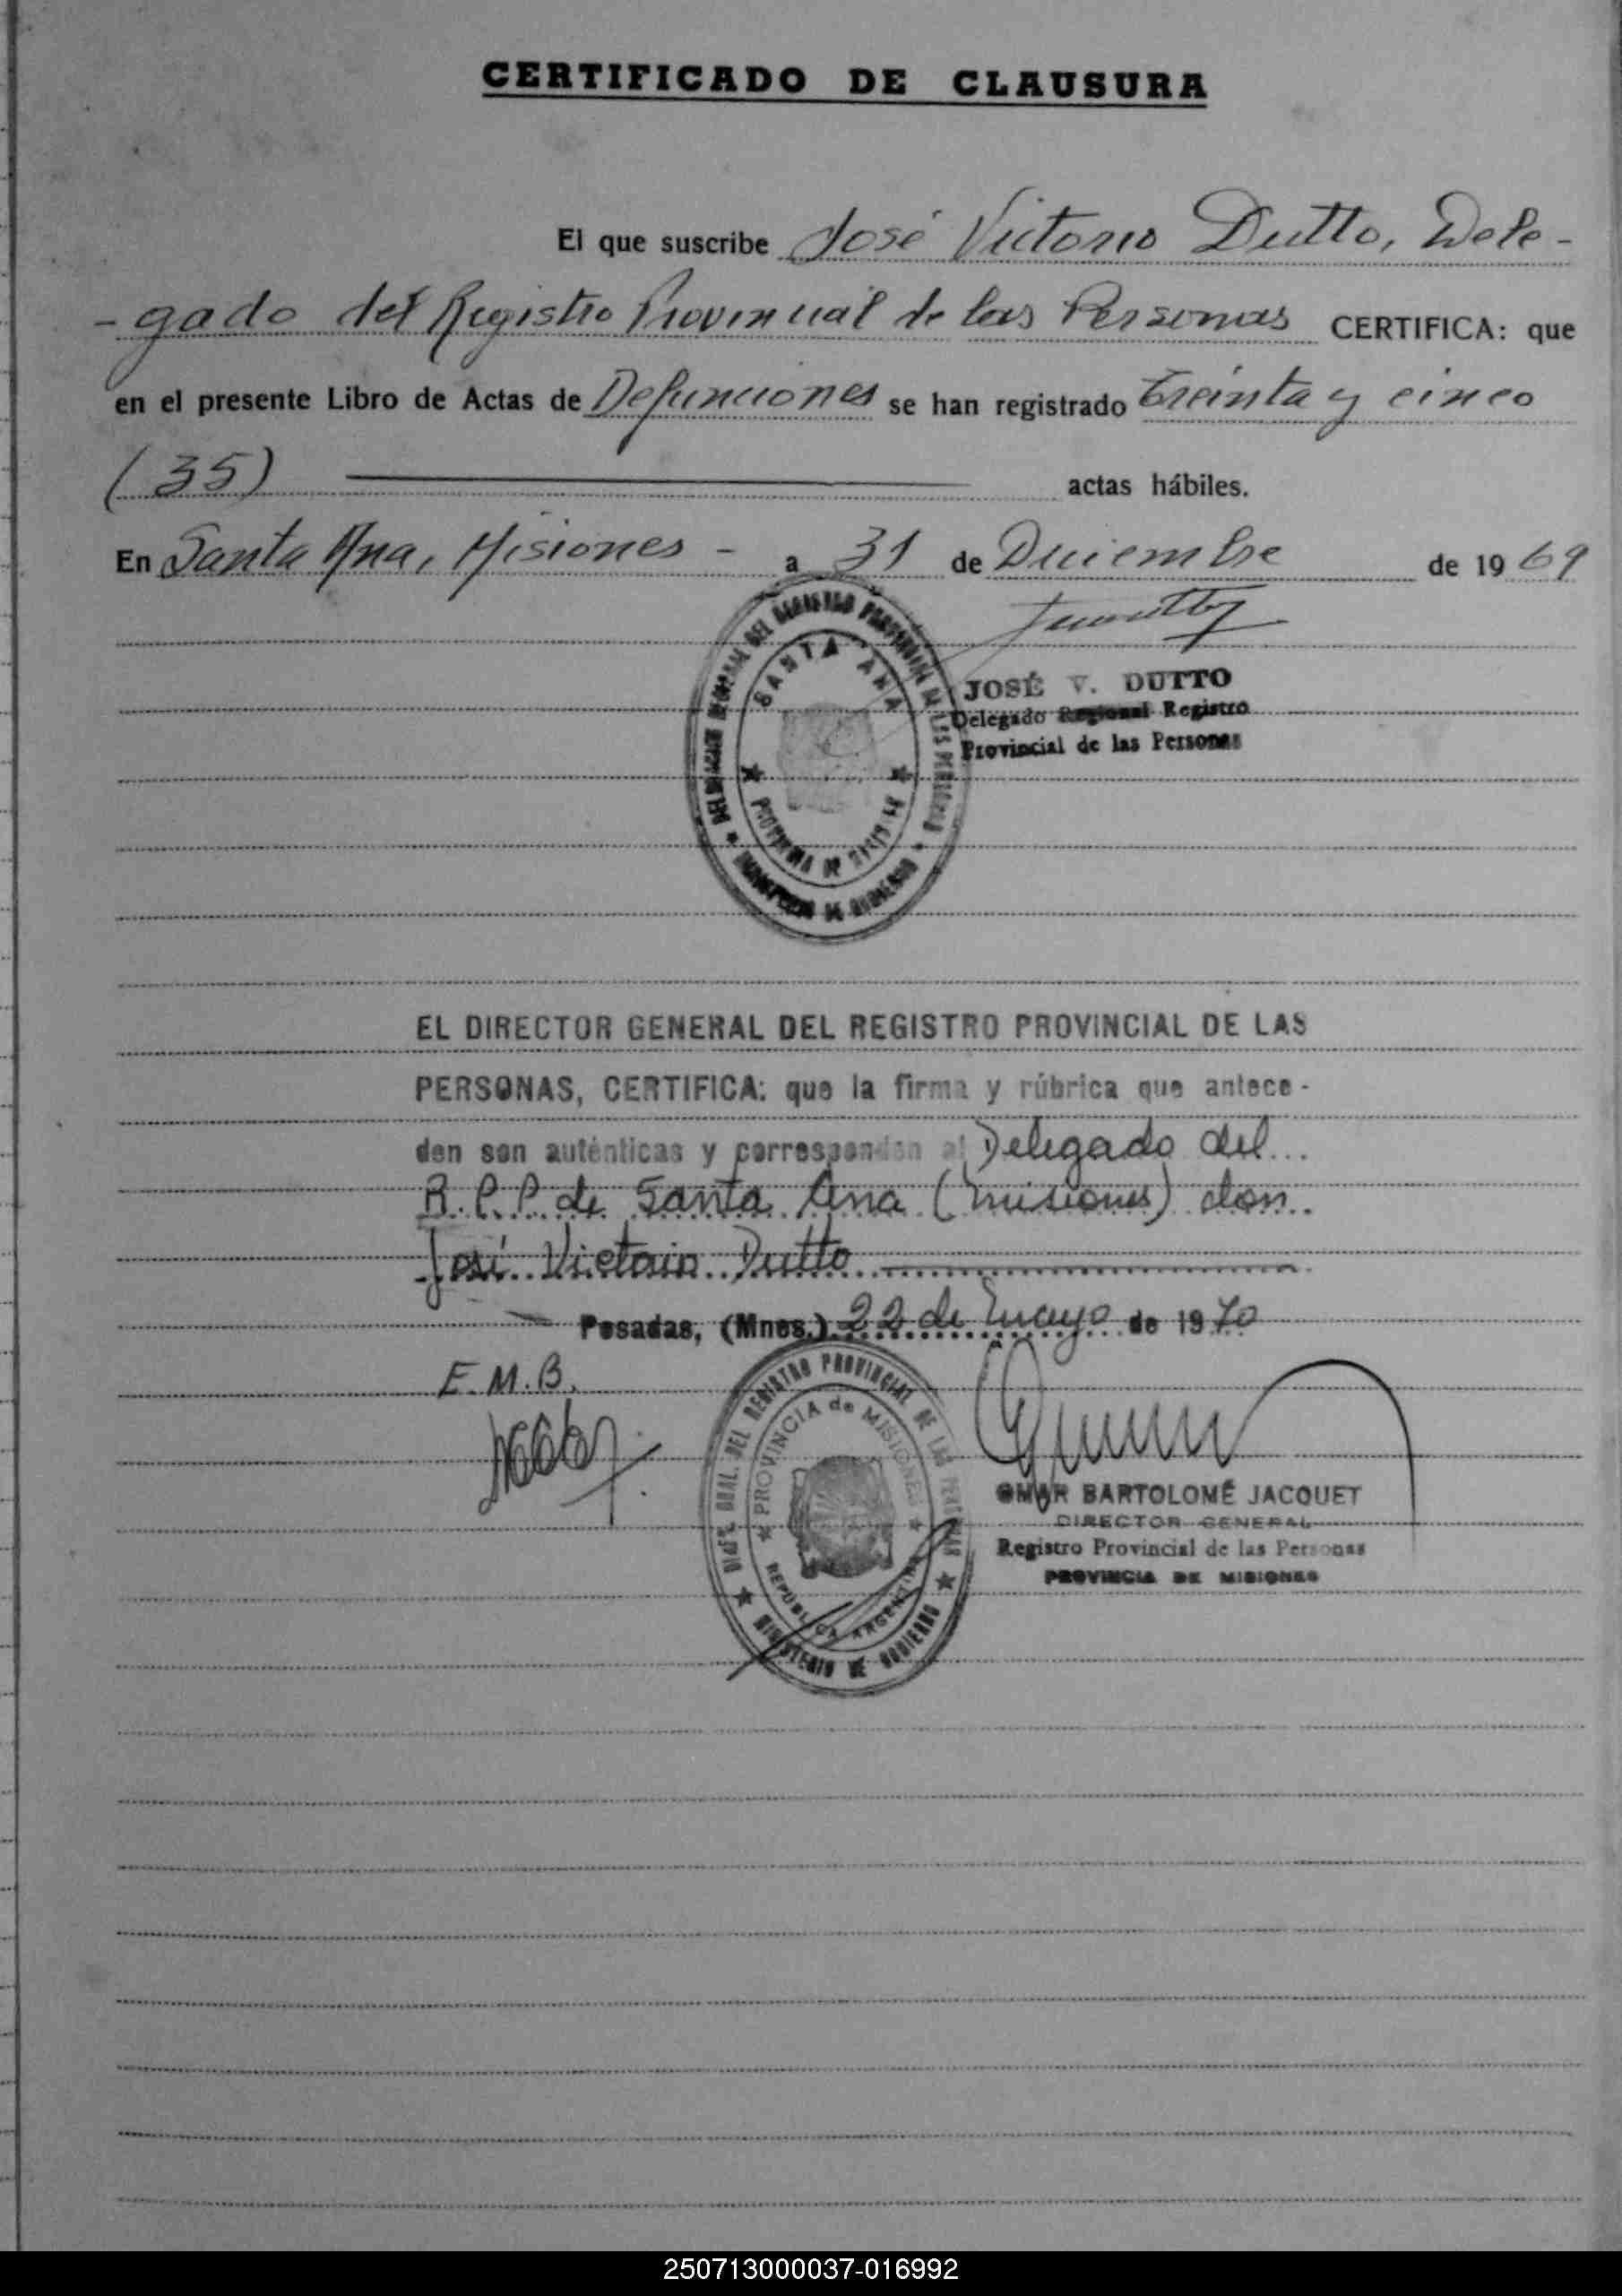 CERTIFICADO DE CLAUSURA
El que suscribe José Victorio Dutto, Dele-
-gado del Registro Provincial de las Personas CERTIFICA: que
en el presente Libro de Actas de Defunciones se han registrado treinta y cinco
(35) actas hábiles.
En Santa Ana, Misiones - a 31 de Diciembre de 1969
JOSÉ V. DUTTO
Delegado Regional Registro
Provincial de las Personas
DEL REGISTRO PROVINCIAL DE LAS PERSONAS
SANTA ANA
PROVINCIA DE MISIONES
MINISTERIO DE GOBIERNO
EL DIRECTOR GENERAL DEL REGISTRO PROVINCIAL DE LAS
PERSONAS, CERTIFICA: que la firma y rúbrica que antece-
den son auténticas y corresponden al Delegado del...
R.P.P. de Santa Ana (Misiones) don.
José Victorio Dutto
Posadas, (Mnes.) 22 de mayo de 1970
E.M.B.
GRAL. DEL REGISTRO PROVINCIAL DE LAS PERSONAS
PROVINCIA de MISIONES
REPÚBLICA ARGENTINA
MINISTERIO DE GOBIERNO
OMAR BARTOLOMÉ JACQUET
DIRECTOR GENERAL
Registro Provincial de las Personas
PROVINCIA DE MISIONES
250713000037-016992